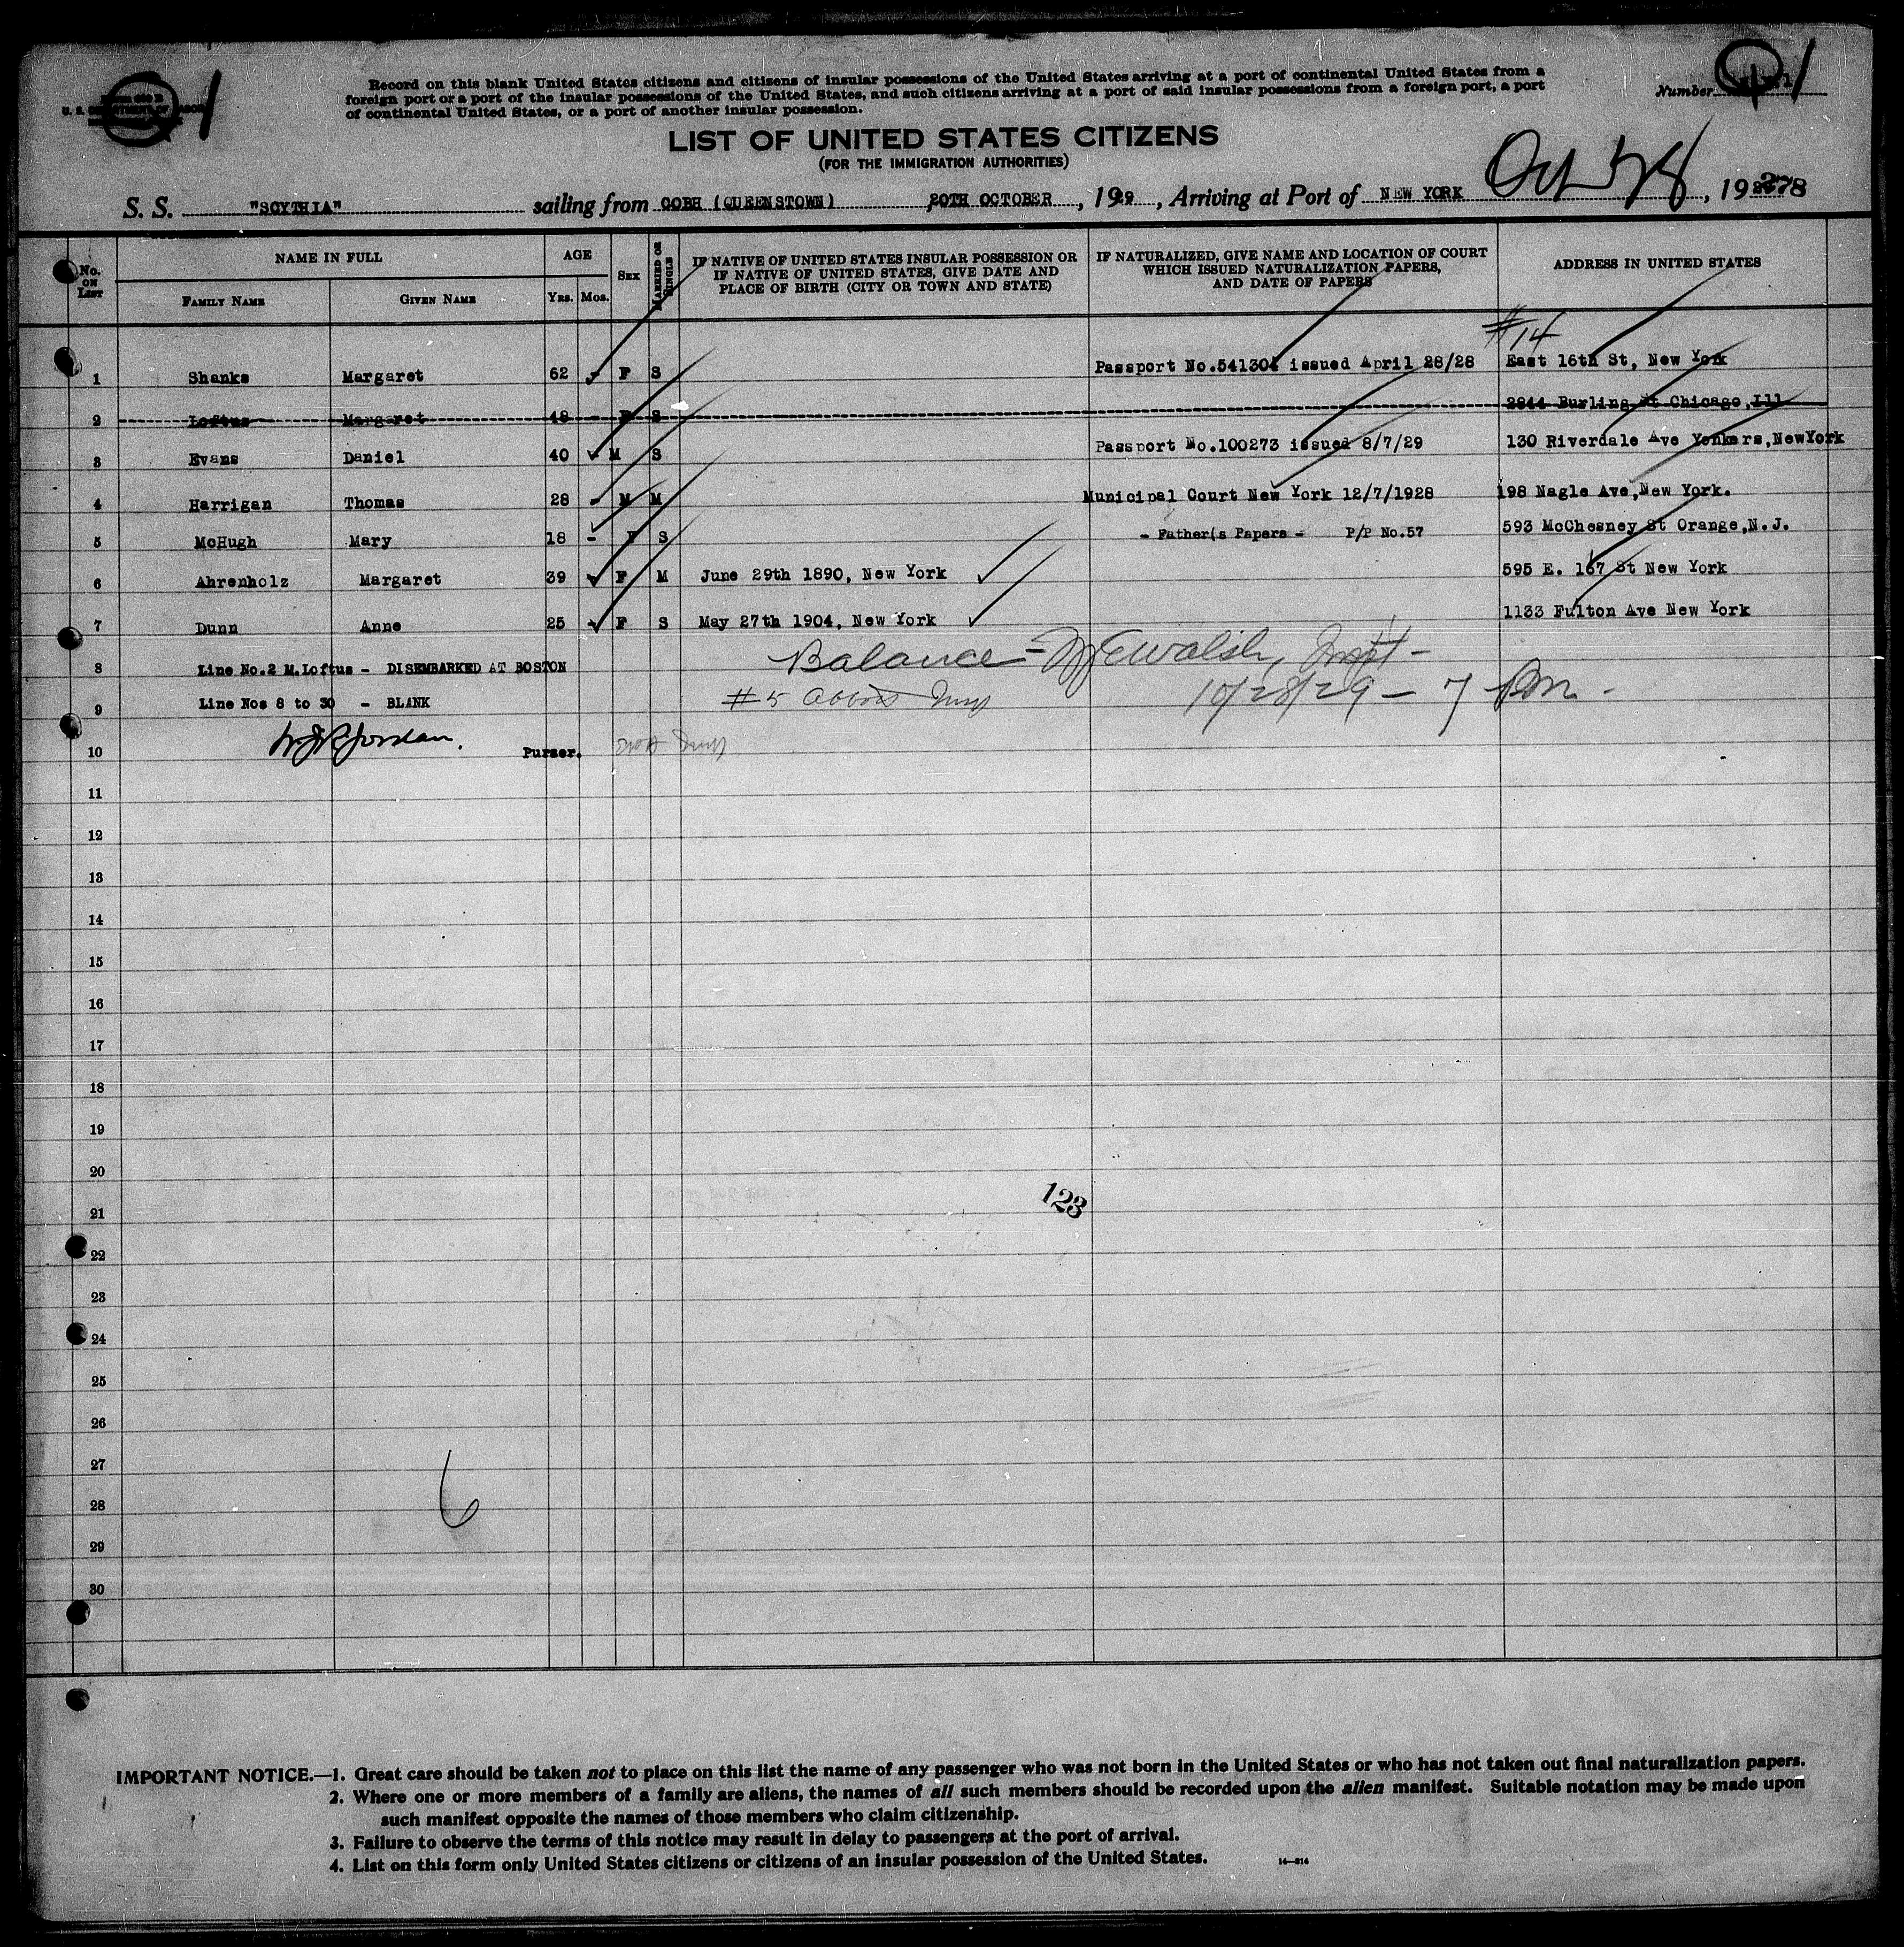 1
Number 1
Record on this blank United States citizens and citizens of insular possessions of the United States arriving at a port of continental United States from a
foreign port or a port of the insular possessions of the United States, and such citizens arriving at a port of said insular possessions from a foreign port, a port
of continental United States, or a port of another insular possession.
LIST OF UNITED STATES CITIZENS
(FOR THE IMMIGRATION AUTHORITIES)
S. S. "SCYTHIA" sailing from COBH (QUEENSTOWN) 20TH OCTOBER, 1929, Arriving at Port of NEW YORK Oct 28, 19
No. ON LIST
NAME IN FULL
FAMILY NAME GIVEN NAME
AGE
YRS. MOS.
SEX
MARRIED OR SINGLE
IF NATIVE OF UNITED STATES INSULAR POSSESSION OR
IF NATIVE OF UNITED STATES, GIVE DATE AND
PLACE OF BIRTH (CITY OR TOWN AND STATE)
IF NATURALIZED, GIVE NAME AND LOCATION OF COURT
WHICH ISSUED NATURALIZATION PAPERS,
AND DATE OF PAPERS
ADDRESS IN UNITED STATES
#14
1 Shanks Margaret 62 - F S Passport No.541304 issued April 28/28 East 16th St, New York
2 Loftus Margaret 48 - F S 2844 Burling St Chicago,Ill
3 Evans Daniel 40 - M S Passport No.100273 issued 8/7/29 130 Riverdale Ave Yonkers,NewYork
4 Harrigan Thomas 28 - M M Municipal Court New York 12/7/1928 198 Nagle Ave,New York.
5 McHugh Mary 18 - F S - Father(s Papers - P/P No.57 593 McChesney St Orange,N.J.
6 Ahrenholz Margaret 39 - F M June 29th 1890, New York 595 E. 167 St New York
7 Dunn Anne 25 - F S May 27th 1904, New York 1133 Fulton Ave New York
8 Line No.2 M.Loftus - DISEMBARKED AT BOSTON Balance - Walsh, Inspt -
9 Line Nos 8 to 30 - BLANK #5 Insp 10/28/29 - 7 Pm -
10 Jordan. Purser.
11
12
13
14
15
16
17
18
19
20
21
123
22
23
24
25
26
27
28
6
29
30
IMPORTANT NOTICE.—1. Great care should be taken not to place on this list the name of any passenger who was not born in the United States or who has not taken out final naturalization papers.
2. Where one or more members of a family are aliens, the names of all such members should be recorded upon the alien manifest. Suitable notation may be made upon
such manifest opposite the names of those members who claim citizenship.
3. Failure to observe the terms of this notice may result in delay to passengers at the port of arrival.
4. List on this form only United States citizens or citizens of an insular possession of the United States. 14—814